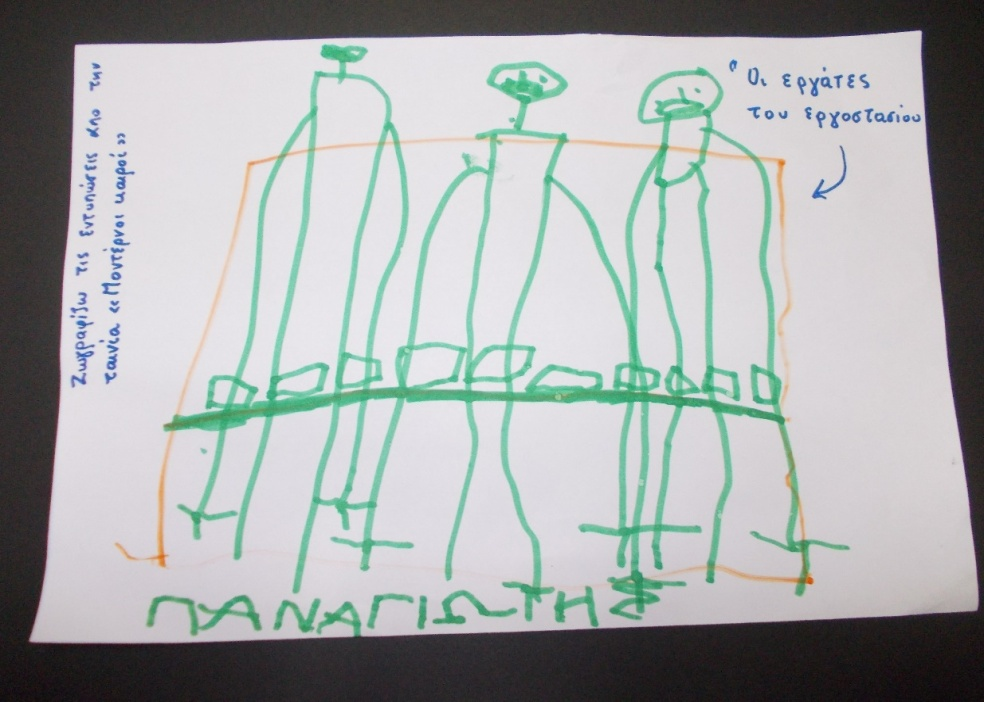 Ζωγραφίζω τις εντυπώσεις απο την
ταινία «Μοντέρνοι καιροί»
"Οι εργάτες
του εργοστασίου
ΠΑΝΑΓΙΩΤΗΣ